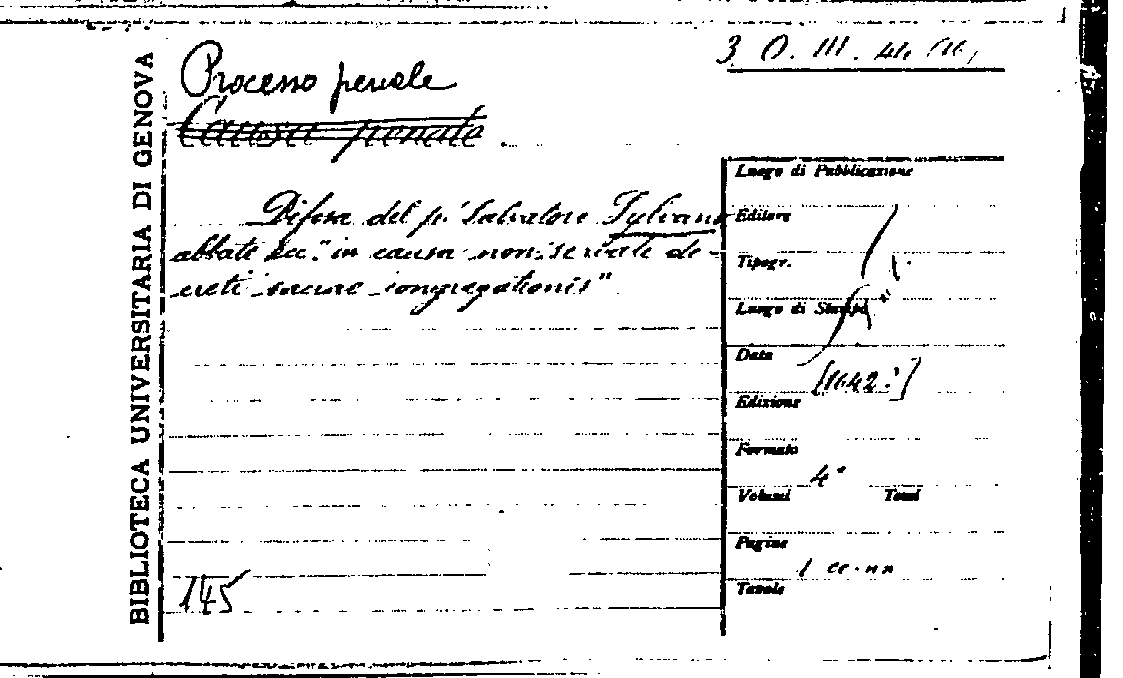 BIBLIOTECA UNIVERSITARIA DI GENOVA
3. O. III. 41.
Processo penale
Causa penale
Difesa del p. Salvatore Sylvano
abbate ecc. "in causa non
creti sacrae congregationis"
145
Luogo di Pubblicazione
Editore
Tipogr.
Luogo di Stampa
Data
[1642?]
Edizione
Formato
4°
Volumi Tomi
Pagine
1 cc. nn
Tavole